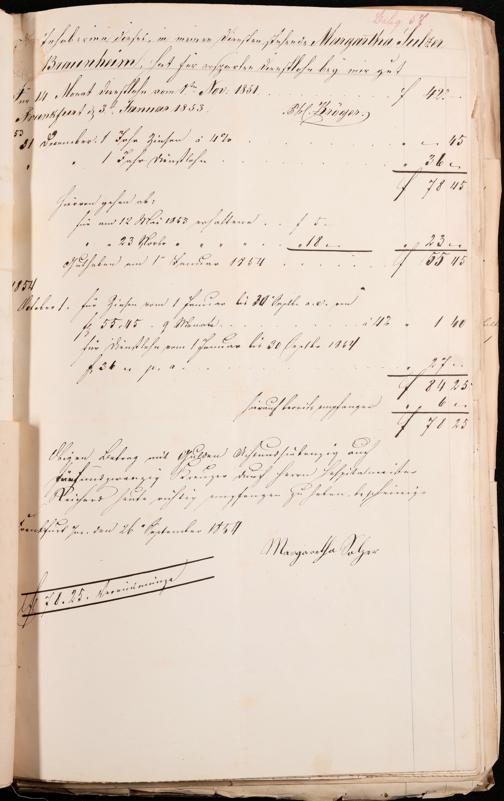 Beleg 67
Inhaberin dieses, in meinen Diensten stehende Margaretha Sulzer
Braunheim, hat für ersparten Dienstlohn bey mir gut
für 14 Monat Dienstlohn vom 1ten Nov. 1851 f 42
Frankfurt d 3. Januar 1853.
53
31 December. 1 Jahr Zinsen à 4% " " 45
" 1 Jahr Dienstlohn " 36 "
f 78 45
Hiervon gehen ab:
für am 12 Mai 1853 erhaltene f 5
" " 23 " " " " 18 " " 23
Guthaben am 1 Januar 1854 f 55 45
1854
October 1. für Zinsen vom 1 Januar bis 30 Septbr a.c. von
f 55.45 - 9 Monate à 4% " 1 40
für Dienstlohn vom 1 Januar bis 30 Septbr 1854
f 36 " p. a. " 27
f 84 25
hierauf bereits empfangen " 6
f 78 25
Obigen Betrag mit Gulden Achtundsiebenzig auch
fünfundzwanzig Kreuzer durch Herrn Hospitalmeister
Reichard heute richtig empfangen zu haben bescheinige
Frankfurt den 26 September 1854
Margaretha Solzer
f 78.25.